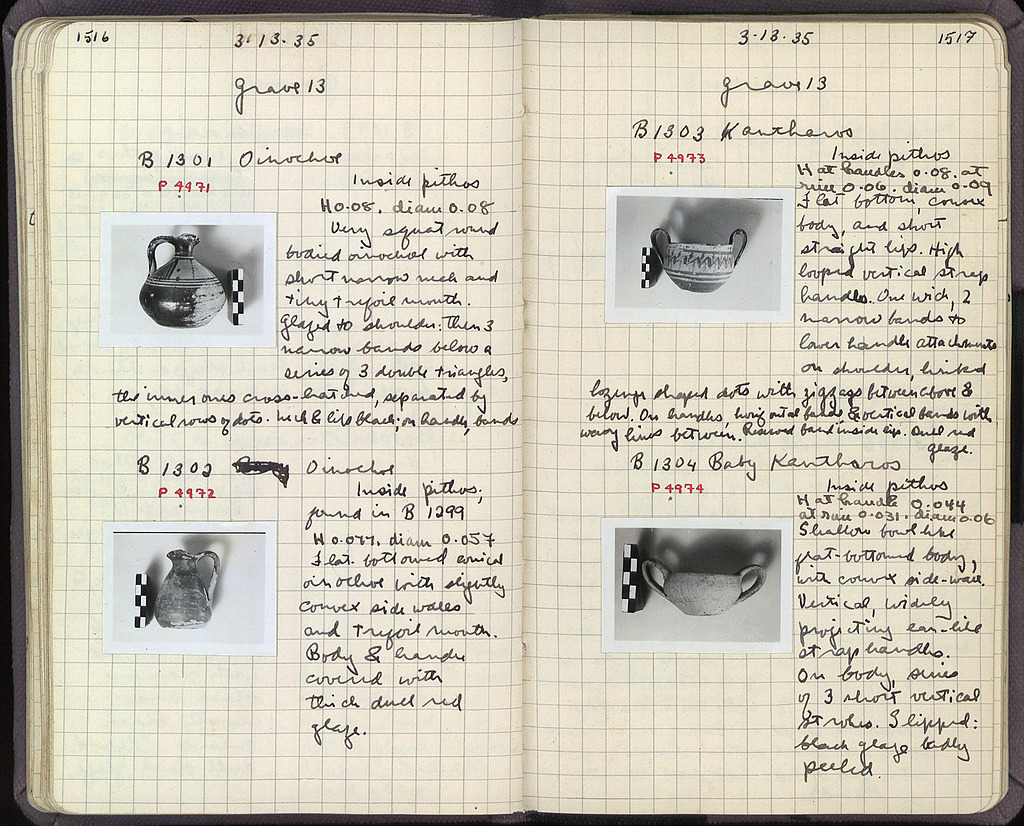 1516
3·13·35
grave 13
B 1301 Oinochoe
P 4971
Inside pithos
H 0.08. diam 0.08
Very squat round
bodied oinochoe with
short narrow neck and
tiny trefoil mouth.
Glazed to shoulder: then 3
narrow bands below a
series of 3 double triangles,
the inner ones cross-hatched, separated by
vertical rows of dots. Neck & lips black; on handle, bands
B 1302 Oinochoe
P 4972
Inside pithos;
found in B 1299
H 0.077. diam 0.057
Flat-bottomed conical
oinochoe with slightly
convex side walls
and trefoil mouth.
Body & handle
covered with
thick dull red
glaze.
3·13·35
1517
grave 13
B 1303 Kantharos
P 4973
Inside pithos
H at handles 0.08. at
rim 0.06. diam 0.09
Flat bottom, convex
body, and short
straight lips. High
looped vertical strap
handles. One wide, 2
narrow bands to
lower handle attachments
on shoulder, linked
lozenge shaped dots with zigzags between above &
below. On handles, horizontal bands & vertical bands with
wavy lines between. Reserved band inside lip. Dull red
glaze.
B 1304 Baby Kantharos
P 4974
Inside pithos
H at handle 0.044
at rim 0.031. diam 0.06
Shallow bowl like
flat-bottomed body,
with convex side-wall.
Vertical, widely
projecting ear-like
strap handles.
On body, series
of 3 short vertical
strokes. Slipped:
black glaze badly
peeled.